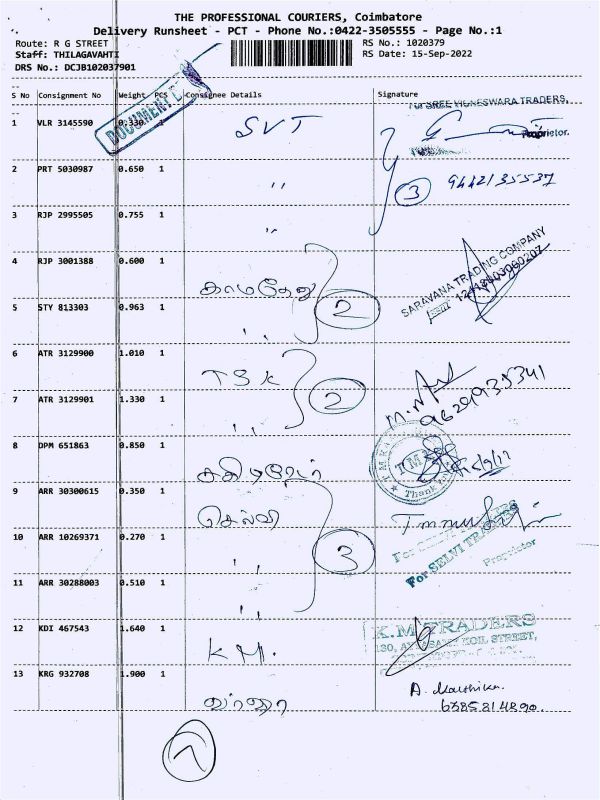 THE PROFESSIONAL COURIERS, Coimbatore
Delivery Runsheet - PCT - Phone No.:0422-3505555 - Page No.:1
Route: R G STREET
RS No.: 1020379
Staff: THILAGAVAHTI
RS Date: 15-Sep-2022
DRS No.: DCJB102037901
S No Consignment No Weight PCS Consignee Details Signature
DOCUMENT
For SREE VIGNESWARA TRADERS,
1 VLR 3145590 0.330 1 SVT
Proprietor.
2 PRT 5030987 0.650 1 " 3 9442135537
3 RJP 2995505 0.755 1 "
4 RJP 3001388 0.600 1 காமதேனு
SARAVANA TRADING COMPANY
5 STY 813303 0.963 1 " 2
6 ATR 3129900 1.010 1 TSK
7 ATR 3129901 1.330 1 " 2
8 DPM 651863 0.850 1
Thank You
9 ARR 30300615 0.350 1 செல்வி
10 ARR 10269371 0.270 1 " 3
For SELVI TRADERS
Proprietor
11 ARR 30288003 0.510 1 "
12 KDI 467543 1.640 1 KM.
K.M TRADERS
KOIL STREET,
13 KRG 932708 1.900 1
A. Karthika.
6385214890.
7